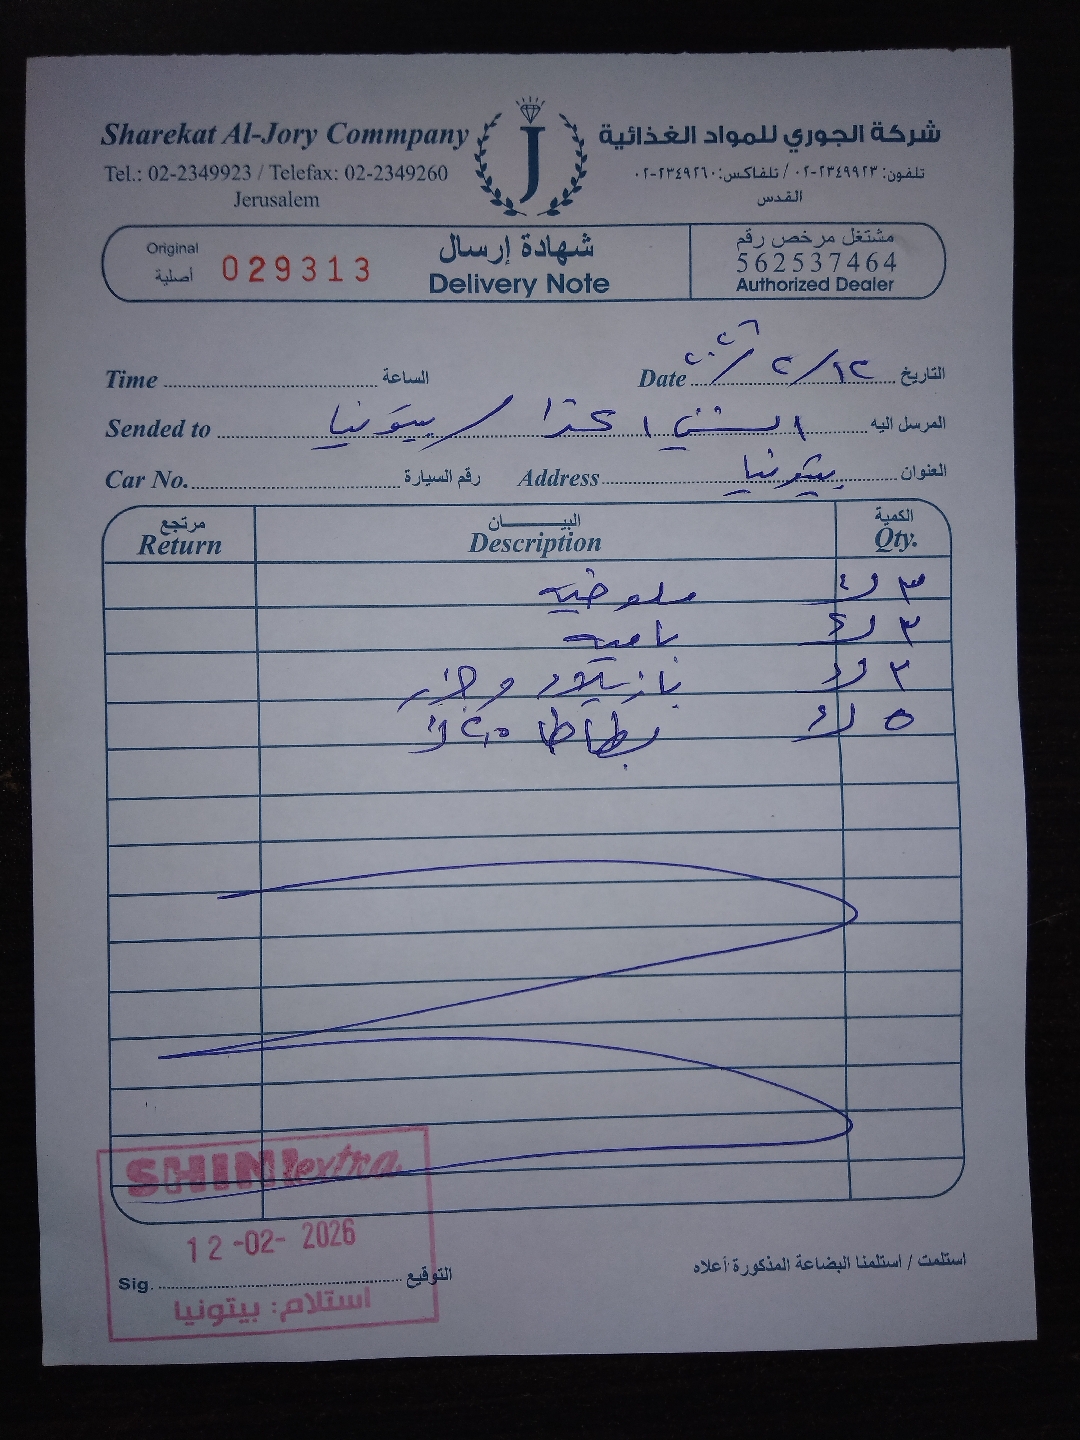 Sharekat Al-Jory Commpany
شركة الجوري للمواد الغذائية
Tel.: 02-2349923 / Telefax: 02-2349260
تلفون: ٠٢-٢٣٤٩٩٢٣ / تلفاكس: ٠٢-٢٣٤٩٢٦٠
Jerusalem
القدس
J
Original أصلية 029313
شهادة إرسال
Delivery Note
مشتغل مرخص رقم
562537464
Authorized Dealer
Time الساعة
Date ١٢/٢/٢٠٢٦ التاريخ
Sended to الشني اكسترا / بيتونيا المرسل اليه
Car No. رقم السيارة Address بيتونيا العنوان
مرتجع البيــــــان الكمية
Return Description Qty.
٣ ك ملوخيه
٣ ك باميه
٣ ك بازيلاء وجزر
٥ ك بطاطا ٢,٥ ك
SHINI extra
12-02-2026
استلمت / استلمنا البضاعة المذكورة أعلاه
Sig. التوقيع
استلام: بيتونيا